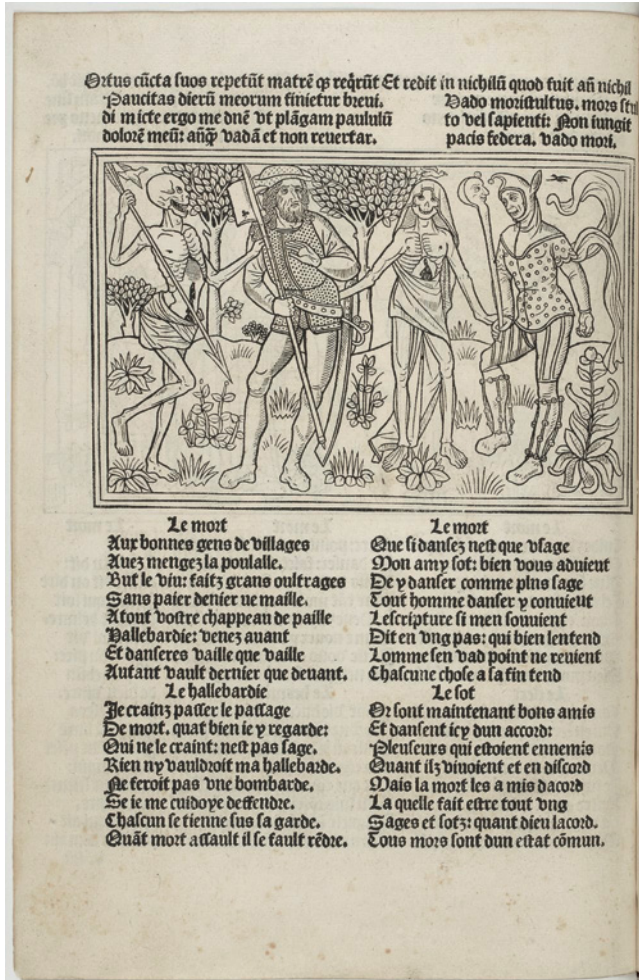 Ortus cūcta suos repetūt matrē qз reqͥrūt Et redit in nichilū quod fuit añ nichil
Paucitas dierū meorum finietur breui.
di micte ergo me dnē vt plāgam paululū
dolorē meū: añqꝫ vadā et non reuertar.
Uado moristultus. mors stul
to vel sapienti: Non iungit
pacis federa. vado mori.
Le mort
Aux bonnes gens de villages
Auez mengez la poulalle.
But le vin: faitz grans oultrages
Sans paier denier ne maille.
Atout vostre chappeau de paille
Hallebardie: venez auant
Et danseres vaille que vaille
Autant vault dernier que deuant.
Le hallebardie
Je crainz passer le passage
De mort. quat bien ie y regarde:
Qui ne le craint: nest pas sage.
Rien ny vauldroit ma hallebarde.
Ne feroit pas vne bombarde.
Se ie me cuidoye deffendre.
Chascun se tienne sus sa garde.
Quāt mort assault il se fault rēdre.
Le mort
Que si dansez nest que vsage
Mon amy sot: bien vous aduient
De y danser comme plus sage
Tout homme danser y conuient
Lescripture si men souuient
Dit en vng pas: qui bien lentend
Lomme sen vad point ne reuient
Chascune chose a sa fin tend
Le sot
Or sont maintenant bons amis
Et dansent icy dun accord:
Pleuseurs qui estoient ennemis
Quant ilz viuoient et en discord
Mais la mort les a mis dacord
La quelle fait estre tout vng
Sages et sotz: quant dieu lacord.
Tous mors sont dun estat cōmun.